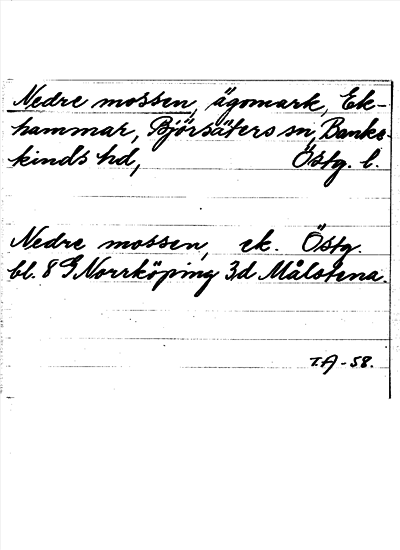 Nedre mossen, ägomark, Ek-
hammar, Björsäters sn, Banke-
kinds hd, Östg. l.
Nedre mossen, ek. Östg.
bl. 8 G Norrköping 3d Målstena.
T.A -58.